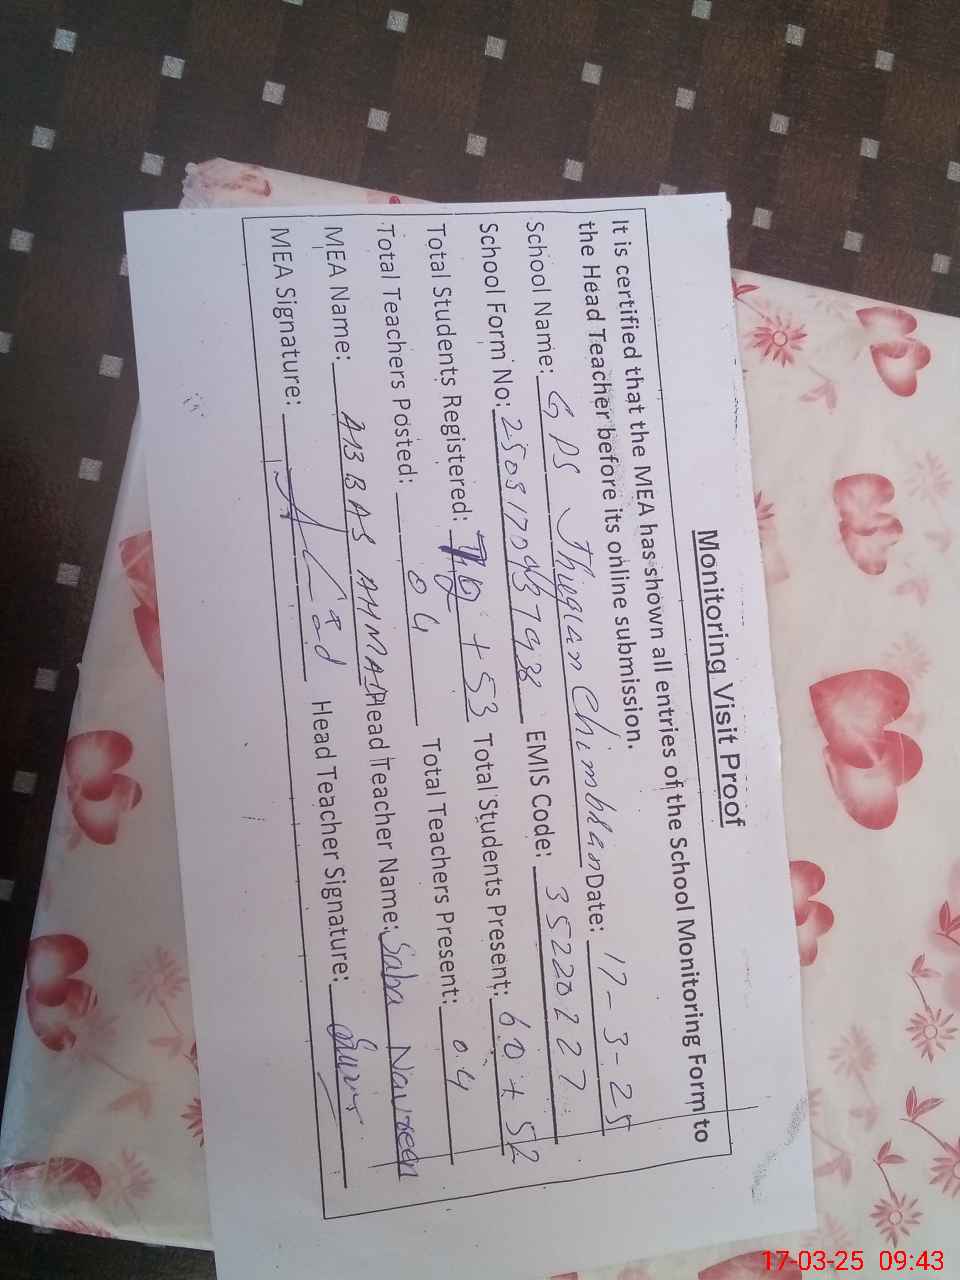 Monitoring Visit Proof
It is certified that the MEA has shown all entries of the School Monitoring Form to
the Head Teacher before its online submission.
School Name: GPS Jhugian Chimbran Date: 17-3-25
School Form No: EMIS Code: 35220227
Total Students Registered: + 53 Total Students Present: 60 + 52
Total Teachers Posted: 04 Total Teachers Present: 04
MEA Name: ABBAS AHMAD Head Teacher Name: Saba Navreen
MEA Signature: Head Teacher Signature:
17-03-25 09:43